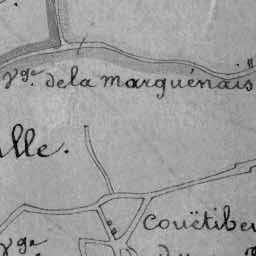 Vge. de la Marguénais
ille.
Couëtibeu
Vge